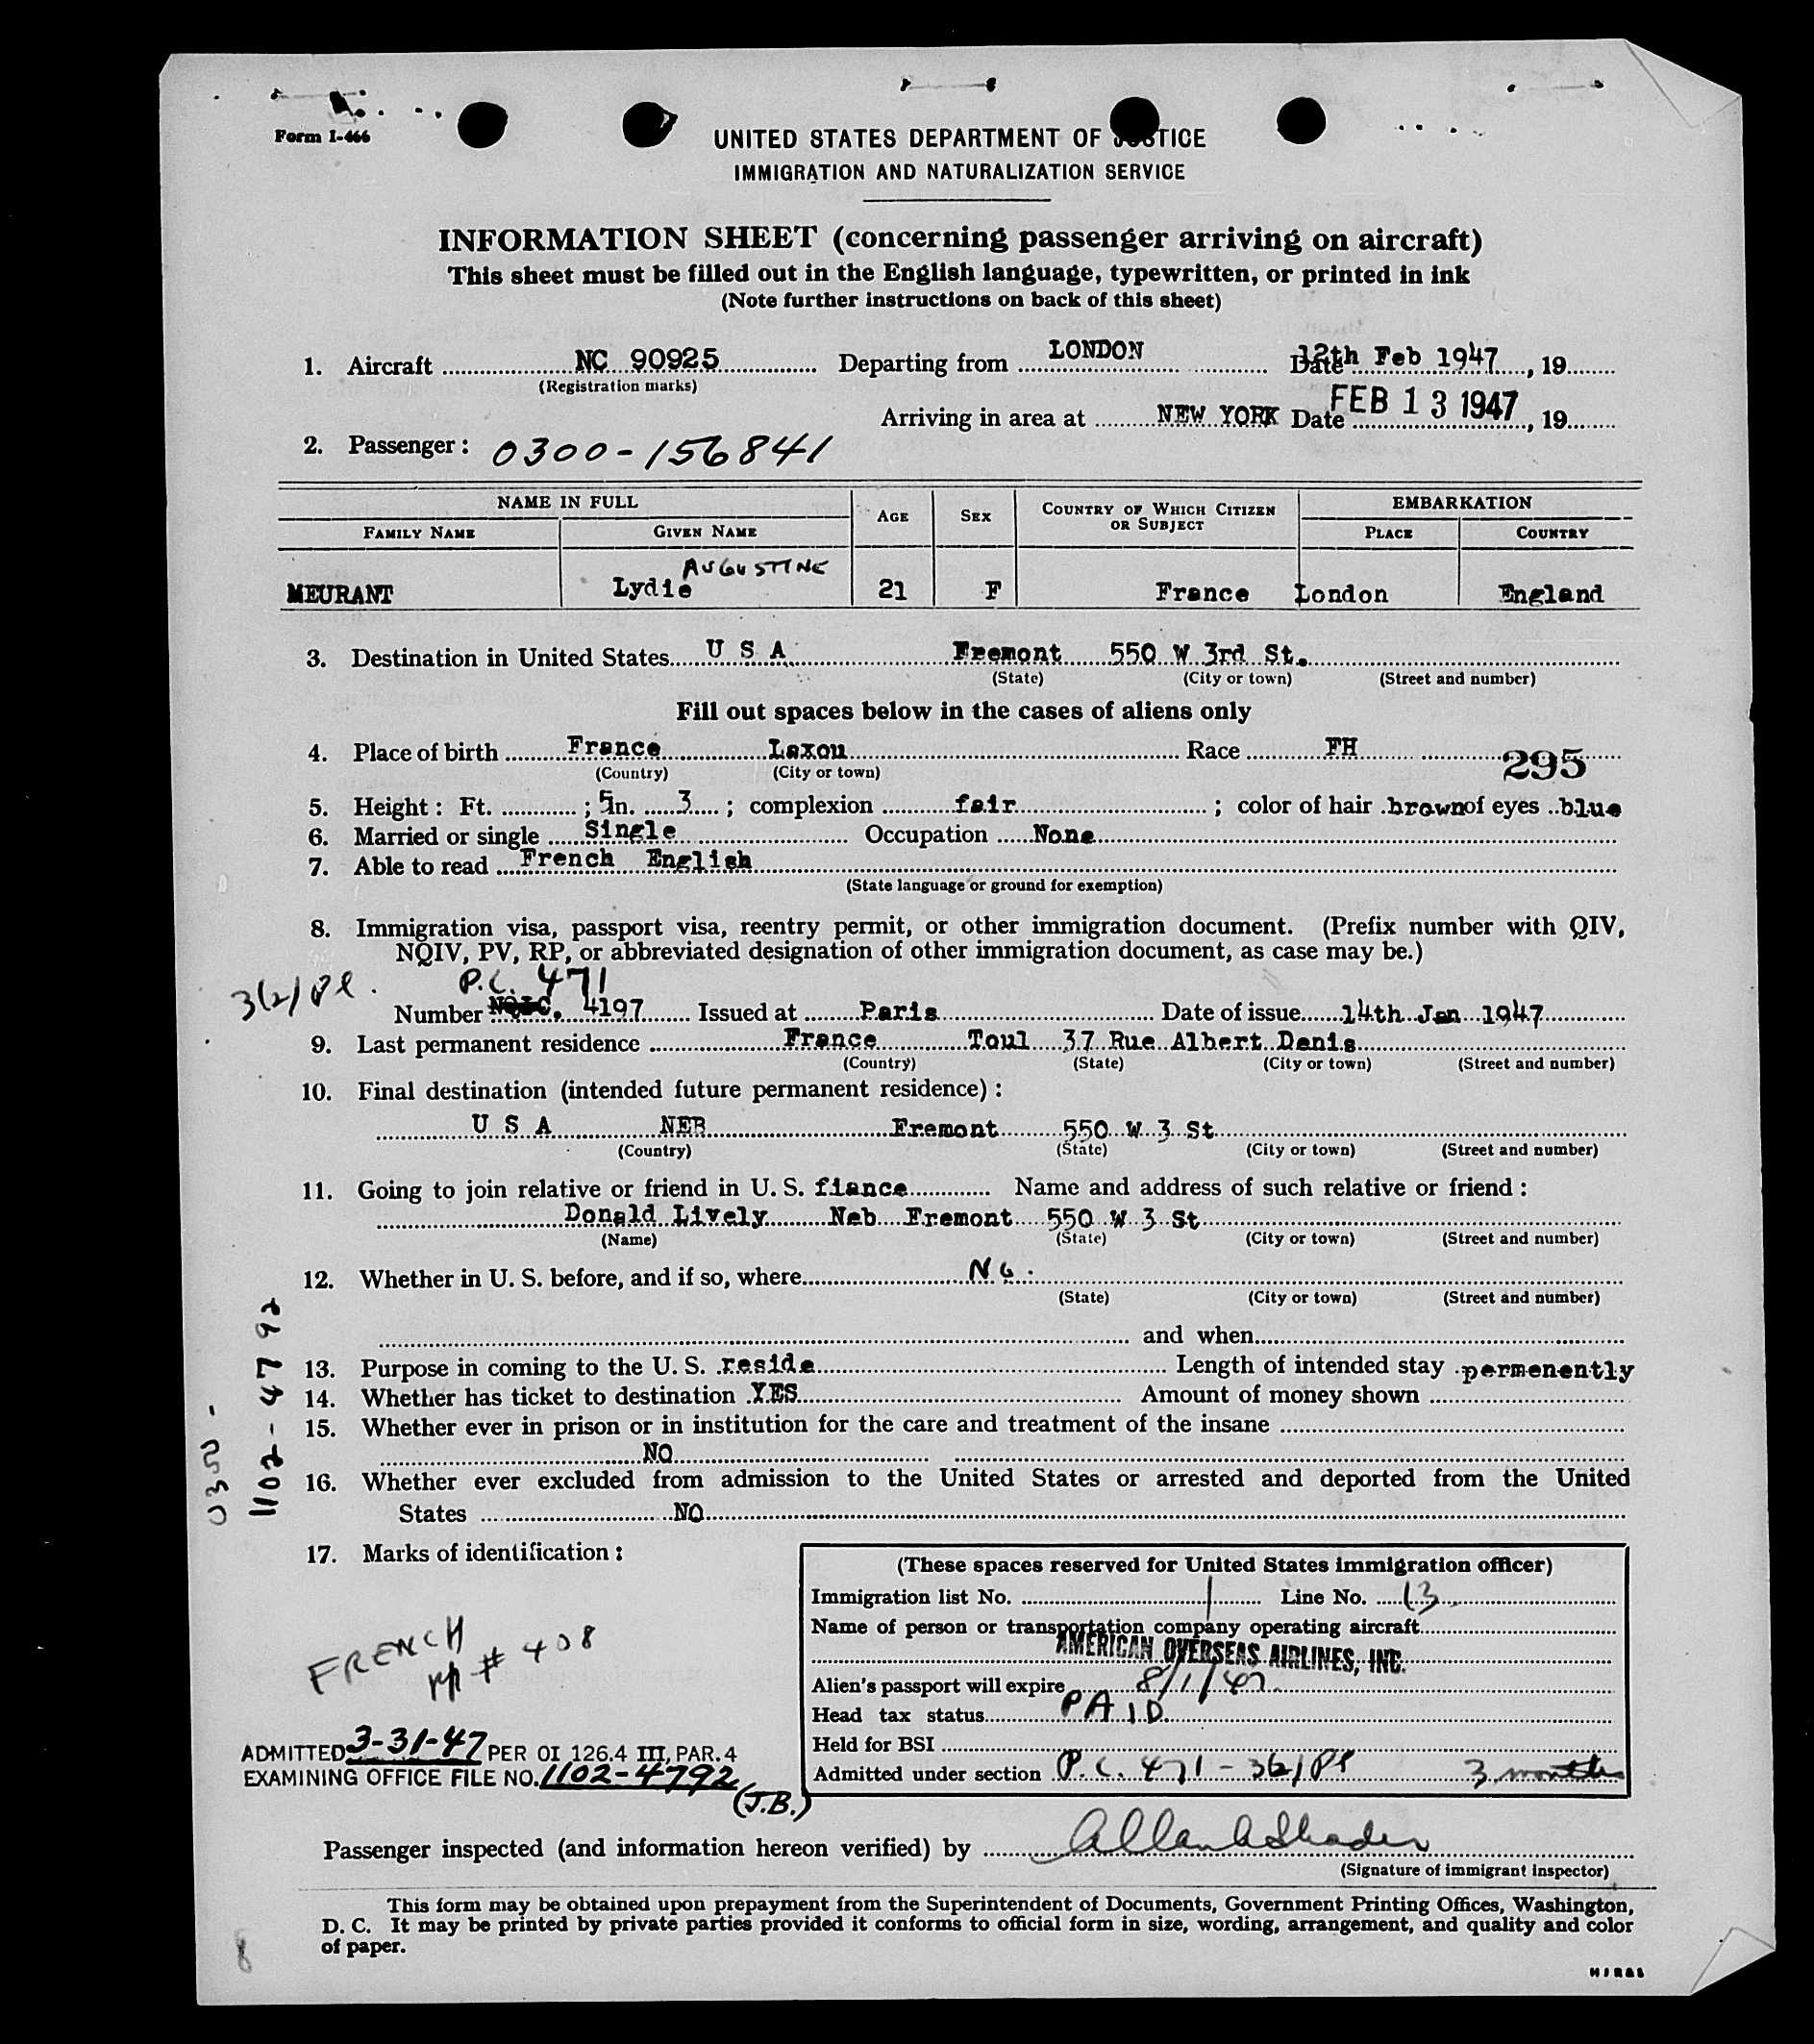 Form I-466
UNITED STATES DEPARTMENT OF JUSTICE
IMMIGRATION AND NATURALIZATION SERVICE
INFORMATION SHEET (concerning passenger arriving on aircraft)
This sheet must be filled out in the English language, typewritten, or printed in ink
(Note further instructions on back of this sheet)
1. Aircraft NC 90925 Departing from LONDON Date 12th Feb 1947, 19
(Registration marks)
Arriving in area at NEW YORK Date FEB 13 1947, 19
2. Passenger: 0300-156841
NAME IN FULL AGE SEX COUNTRY OF WHICH CITIZEN OR SUBJECT EMBARKATION
FAMILY NAME GIVEN NAME PLACE COUNTRY
AUGUSTINE
MEURANT Lydie 21 F France London England
3. Destination in United States U S A Fremont 550 W 3rd St.
(State) (City or town) (Street and number)
Fill out spaces below in the cases of aliens only
4. Place of birth France Laxou Race FH 295
(Country) (City or town)
5. Height: Ft. ; 5 In. 3 ; complexion fair ; color of hair brown of eyes blue
6. Married or single Single Occupation None
7. Able to read French English
(State language or ground for exemption)
8. Immigration visa, passport visa, reentry permit, or other immigration document. (Prefix number with QIV,
NQIV, PV, RP, or abbreviated designation of other immigration document, as case may be.)
3(2) Pl. P.C. 471
Number 4197 Issued at Paris Date of issue 14th Jan 1947
9. Last permanent residence France Toul 37 Rue Albert Denis
(Country) (State) (City or town) (Street and number)
10. Final destination (intended future permanent residence):
U S A NEB Fremont 550 W 3 St
(Country) (State) (City or town) (Street and number)
11. Going to join relative or friend in U. S. fiance Name and address of such relative or friend:
Donald Lively Neb Fremont 550 W 3 St
(Name) (State) (City or town) (Street and number)
12. Whether in U. S. before, and if so, where No.
(State) (City or town) (Street and number)
and when
13. Purpose in coming to the U. S. reside Length of intended stay permenently
14. Whether has ticket to destination YES Amount of money shown
15. Whether ever in prison or in institution for the care and treatment of the insane
NO
16. Whether ever excluded from admission to the United States or arrested and deported from the United
States NO
0300-
1102-4792
17. Marks of identification:
(These spaces reserved for United States immigration officer)
Immigration list No. 1 Line No. 13
Name of person or transportation company operating aircraft
AMERICAN OVERSEAS AIRLINES, INC.
Alien's passport will expire 8/1/47
Head tax status PAID
Held for BSI
Admitted under section P.C. 471 - 3(2) Pl 3 months
FRENCH
# 408
ADMITTED 3-31-47 PER OI 126.4 III, PAR. 4
EXAMINING OFFICE FILE NO. 1102-4792
(J.B.)
Passenger inspected (and information hereon verified) by
(Signature of immigrant inspector)
This form may be obtained upon prepayment from the Superintendent of Documents, Government Printing Offices, Washington,
D. C. It may be printed by private parties provided it conforms to official form in size, wording, arrangement, and quality and color
of paper.
8